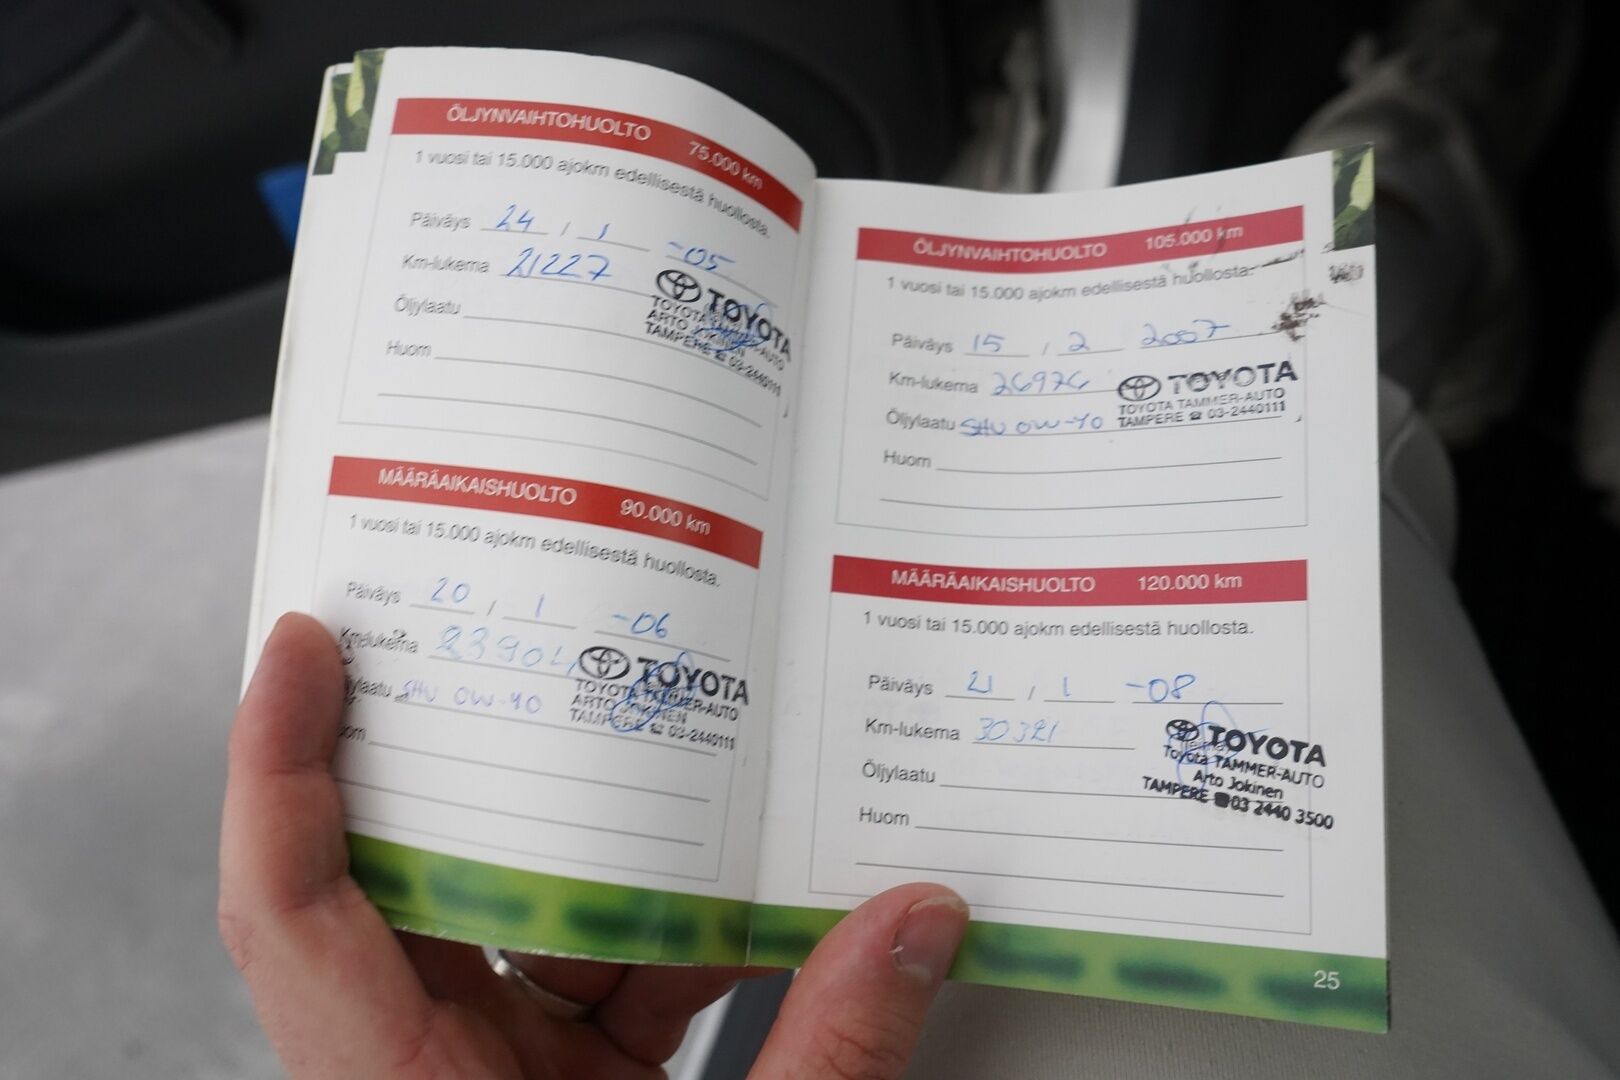 ÖLJYNVAIHTOHUOLTO 75.000 km
1 vuosi tai 15.000 ajokm edellisestä huollosta.
Päiväys 24 / 1 -05
Km-lukema 21227
Öljylaatu
Huom
TOYOTA
TOYOTA TAMMER-AUTO
ARTO JOKINEN
TAMPERE ☎ 03-2440111
MÄÄRÄAIKAISHUOLTO 90.000 km
1 vuosi tai 15.000 ajokm edellisestä huollosta.
Päiväys 20 / 1 -06
Km-lukema 23904
Öljylaatu SHV 0W-40
Huom
TOYOTA
TOYOTA TAMMER-AUTO
ARTO JOKINEN
TAMPERE ☎ 03-2440111
ÖLJYNVAIHTOHUOLTO 105.000 km
1 vuosi tai 15.000 ajokm edellisestä huollosta.
Päiväys 15 / 2 2007
Km-lukema 26976
Öljylaatu SHV 0W-40
Huom
TOYOTA
TOYOTA TAMMER-AUTO
TAMPERE ☎ 03-2440111
MÄÄRÄAIKAISHUOLTO 120.000 km
1 vuosi tai 15.000 ajokm edellisestä huollosta.
Päiväys 21 / 1 -08
Km-lukema 30321
Öljylaatu
Huom
TOYOTA
Toyota TAMMER-AUTO
Arto Jokinen
TAMPERE ☎ 03 2440 3500
25